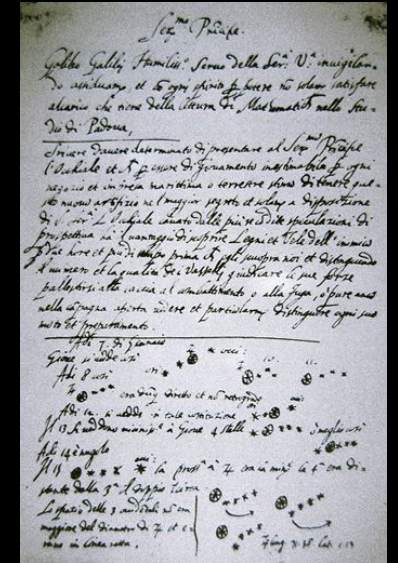 Ser.mo Principe.
Galileo Galilei Humiliss.o Servo della Ser.a V.a invigilan-
do assiduam.te et con ogni spirito p potere no solam satisfare
alcarico che tiene della lettura di Matematich nello Stu-
dio di Padova,
Scrivere davere determinato di presentare al Ser.mo Principe
l'Occhiale et p essere di giovamento inestimabile p ogni
negozio et impresa marittima o terrestre stimo di tenere que-
sto nuovo artifizio nel maggior segreto et solam a disposizione
di S. Ser.tà L'Occhiale cavato dalle più recodite speculazioni di
prospettiva ha il vantaggio di scoprire Legni et Vele dell' inimico
p due hore et più di tempo prima ch egli scuopra noi et distinguendo
il numero et la qualità dei Vasselli giudicare le sue forze
pallestirsi alla caccia al combattimento o alla fuga, o pure anco
nella capagna aperta vedere et particolarm distinguere ogni suo
moto et preparamento.
Adi 7. di Gennaio
Giove si vede così
Adi 8 così
era diretto et no retrogrado
Adi 12. si vedde in tale costituzione
Il 13 si veddono vicinis.i à Giove 4 stelle ò meglio così
Adi 14 è nugolo
Il 15
la pross.a à 4 era la min.e la 4.a era di-
stante dalla 3.a il doppio
Lo spazio delle 3 no era
maggiore del diametro di 4 et e-
rano in linea retta.